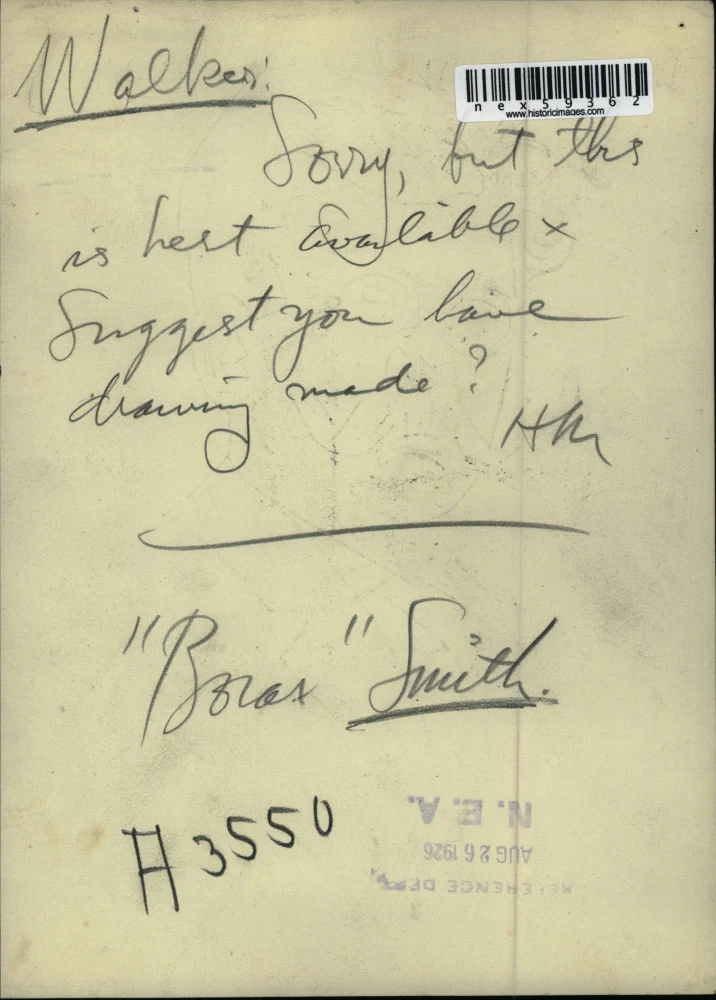 Walker:
nex59362
www.historicimages.com
Sorry, but this
is best available x
Suggest you have
drawing made?
"Borax" Smith.
H 3550
N.E.A.
AUG 26 1926
REFERENCE DEPT.